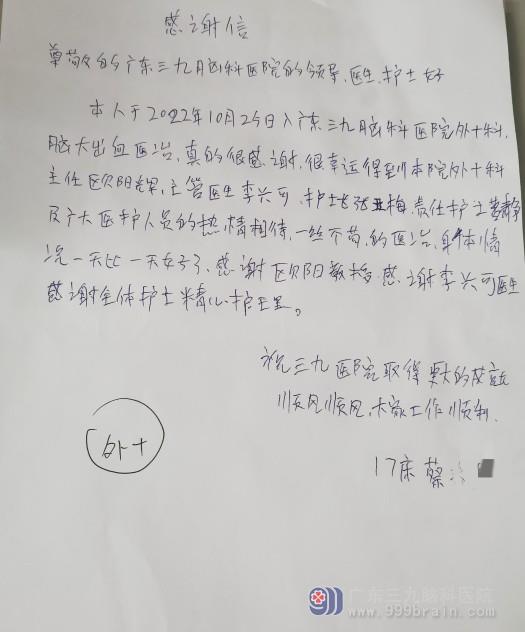 感谢信
尊敬的广东三九脑科医院的领导、医生、护士好
本人于2022年10月25日入广东三九脑科医院外十科,
脑大出血医治,真的很感谢,很幸运得到本院外十科
主任欧阳辉,主管医生李兴可,护士长张亚梅,责任护士
及广大医护人员的热情相待,一丝不苟,的医治,身体情
况一天比一天好了,感谢欧阳教授,感谢李兴可医生
感谢全体护士精心护理。
祝三九医院取得更大的成就
顺风顺风,大家工作顺利.
外十
17床 蔡
广东三九脑科医院
www.999brain.com